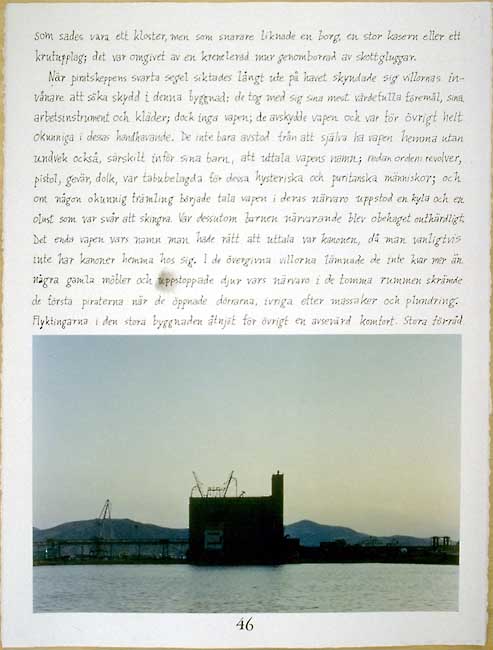 som sades vara ett kloster, men som snarare liknade en borg, en stor kasern eller ett
krutupplag; det var omgivet av en krenelerad mur genomborrad av skottgluggar.
När piratskeppens svarta segel siktades långt ute på havet skyndade sig villornas in-
vånare att söka skydd i denna byggnad: de tog med sig sina mest värdefulla föremål, sina
arbetsinstrument och kläder; dock inga vapen; de avskydde vapen och var för övrigt helt
okunniga i dessas handhavande. De inte bara avstod från att själva ha vapen hemma utan
undvek också, särskilt inför sina barn, att uttala vapens namn; redan orden revolver,
pistol, gevär, dolk, var tabubelagda för dessa hysteriska och puritanska människor; och
om någon okunnig främling började tala vapen i deras närvaro uppstod en kyla och en
olust som var svår att skingra. Var dessutom barnen närvarande blev obehaget outhärdligt.
Det enda vapen vars namn man hade rätt att uttala var kanonen, då man vanligtvis
inte har kanoner hemma hos sig. I de övergivna villorna lämnade de inte kvar mer än
några gamla möbler och uppstoppade djur vars närvaro i de tomma rummen skrämde
de första piraterna när de öppnade dörrarna, ivriga efter massaker och plundring.
Flyktingarna i den stora byggnaden åtnjöt för övrigt en avsevärd komfort. Stora förråd
46